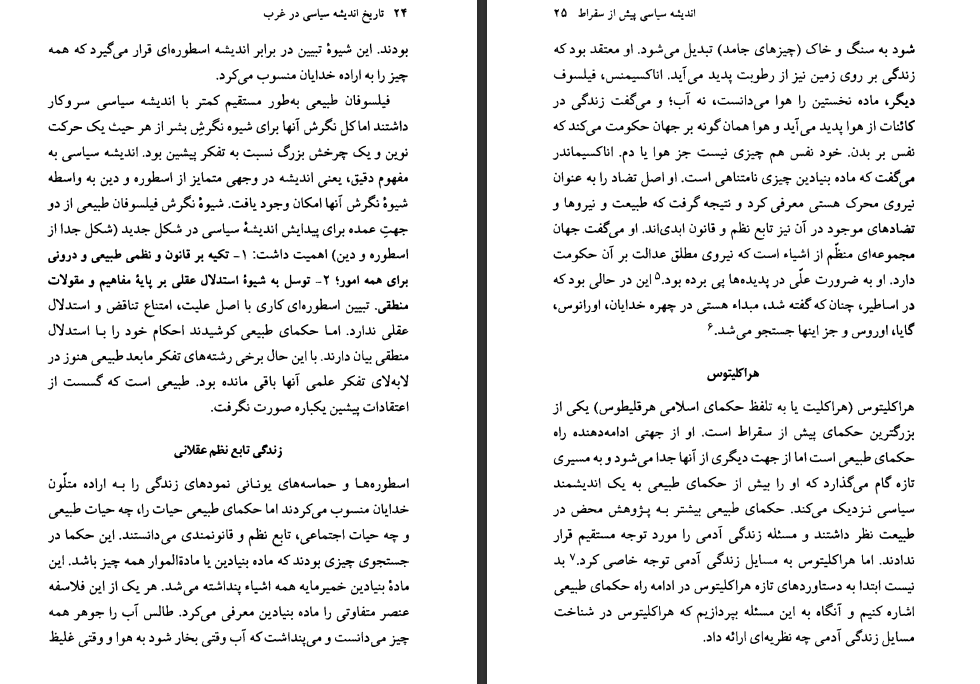 ۲۴ تاریخ اندیشه سیاسی در غرب
بودند. این شیوهٔ تبیین در برابر اندیشه اسطوره‌ای قرار می‌گیرد که همه
چیز را به اراده خدایان منسوب می‌کرد.
فیلسوفان طبیعی به‌طور مستقیم کمتر با اندیشه سیاسی سروکار
داشتند اما کل نگرش آنها برای شیوه نگرشِ بشر از هر حیث یک حرکت
نوین و یک چرخش بزرگ نسبت به تفکر پیشین بود. اندیشه سیاسی به
مفهوم دقیق، یعنی اندیشه در وجهی متمایز از اسطوره و دین به واسطه
شیوهٔ نگرش آنها امکان وجود یافت. شیوهٔ نگرش فیلسوفان طبیعی از دو
جهتِ عمده برای پیدایش اندیشهٔ سیاسی در شکل جدید (شکل جدا از
اسطوره و دین) اهمیت داشت: ۱- تکیه بر قانون و نظمی طبیعی و درونی
برای همه امور؛ ۲- توسل به شیوهٔ استدلال عقلی بر پایهٔ مفاهیم و مقولات
منطقی. تبیین اسطوره‌ای کاری با اصل علیت، امتناع تناقض و استدلال
عقلی ندارد. اما حکمای طبیعی کوشیدند احکام خود را با استدلال
منطقی بیان دارند. با این حال برخی رشته‌های تفکر مابعد طبیعی هنوز در
لابه‌لای تفکر علمی آنها باقی مانده بود. طبیعی است که گسست از
اعتقادات پیشین یکباره صورت نگرفت.
زندگی تابع نظم عقلانی
اسطوره‌ها و حماسه‌های یونانی نمودهای زندگی را به اراده متلّون
خدایان منسوب می‌کردند اما حکمای طبیعی حیات را، چه حیات طبیعی
و چه حیات اجتماعی، تابع نظم و قانونمندی می‌دانستند. این حکما در
جستجوی چیزی بودند که ماده بنیادین یا مادةالموار همه چیز باشد. این
مادهٔ بنیادین خمیرمایه همه اشیاء پنداشته می‌شد. هر یک از این فلاسفه
عنصر متفاوتی را ماده بنیادین معرفی می‌کرد. طالس آب را جوهر همه
چیز می‌دانست و می‌پنداشت که آب وقتی بخار شود به هوا و وقتی غلیظ
اندیشه سیاسی پیش از سقراط ۲۵
شود به سنگ و خاک (چیزهای جامد) تبدیل می‌شود. او معتقد بود که
زندگی بر روی زمین نیز از رطوبت پدید می‌آید. اناکسیمنس، فیلسوف
دیگر، ماده نخستین را هوا می‌دانست، نه آب؛ و می‌گفت زندگی در
کائنات از هوا پدید می‌آید و هوا همان گونه بر جهان حکومت می‌کند که
نفس بر بدن. خود نفس هم چیزی نیست جز هوا یا دم. اناکسیماندر
می‌گفت که ماده بنیادین چیزی نامتناهی است. او اصل تضاد را به عنوان
نیروی محرک هستی معرفی کرد و نتیجه گرفت که طبیعت و نیروها و
تضادهای موجود در آن نیز تابع نظم و قانون ابدی‌اند. او می‌گفت جهان
مجموعه‌ای منظّم از اشیاء است که نیروی مطلق عدالت بر آن حکومت
دارد. او به ضرورت علّی در پدیده‌ها پی برده بود.۵ این در حالی بود که
در اساطیر، چنان که گفته شد، مبداء هستی در چهره خدایان، اورانوس،
گایا، اوروس و جز اینها جستجو می‌شد.۶
هراکلیتوس
هراکلیتوس (هراکلیت یا به تلفظ حکمای اسلامی هرقلیطوس) یکی از
بزرگترین حکمای پیش از سقراط است. او از جهتی ادامه‌دهنده راه
حکمای طبیعی است اما از جهت دیگری از آنها جدا می‌شود و به مسیری
تازه گام می‌گذارد که او را بیش از حکمای طبیعی به یک اندیشمند
سیاسی نزدیک می‌کند. حکمای طبیعی بیشتر به پژوهش محض در
طبیعت نظر داشتند و مسئله زندگی آدمی را مورد توجه مستقیم قرار
ندادند. اما هراکلیتوس به مسایل زندگی آدمی توجه خاصی کرد.۷ بد
نیست ابتدا به دستاوردهای تازه هراکلیتوس در ادامه راه حکمای طبیعی
اشاره کنیم و آنگاه به این مسئله بپردازیم که هراکلیتوس در شناخت
مسایل زندگی آدمی چه نظریه‌ای ارائه داد.